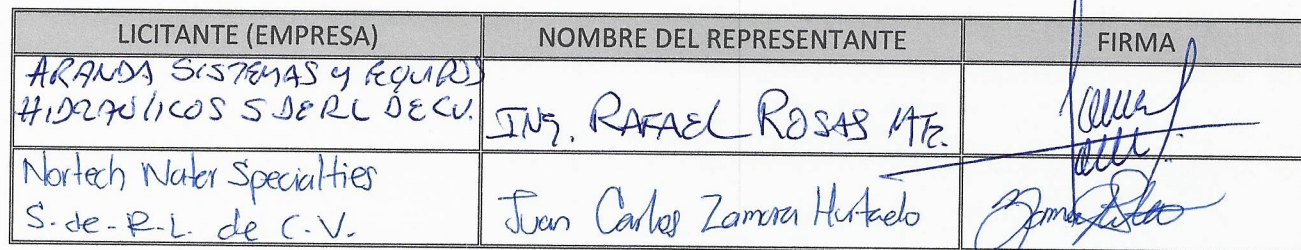 LICITANTE (EMPRESA) NOMBRE DEL REPRESENTANTE FIRMA
ARANDA SISTEMAS y EQUIPOS
HIDRAULICOS S DE RL DE CV.
ING. RAFAEL ROSAS MTZ.
Nortech Water Specialties
S. de - R.L. de C.V.
Juan Carlos Zamora Hurtado